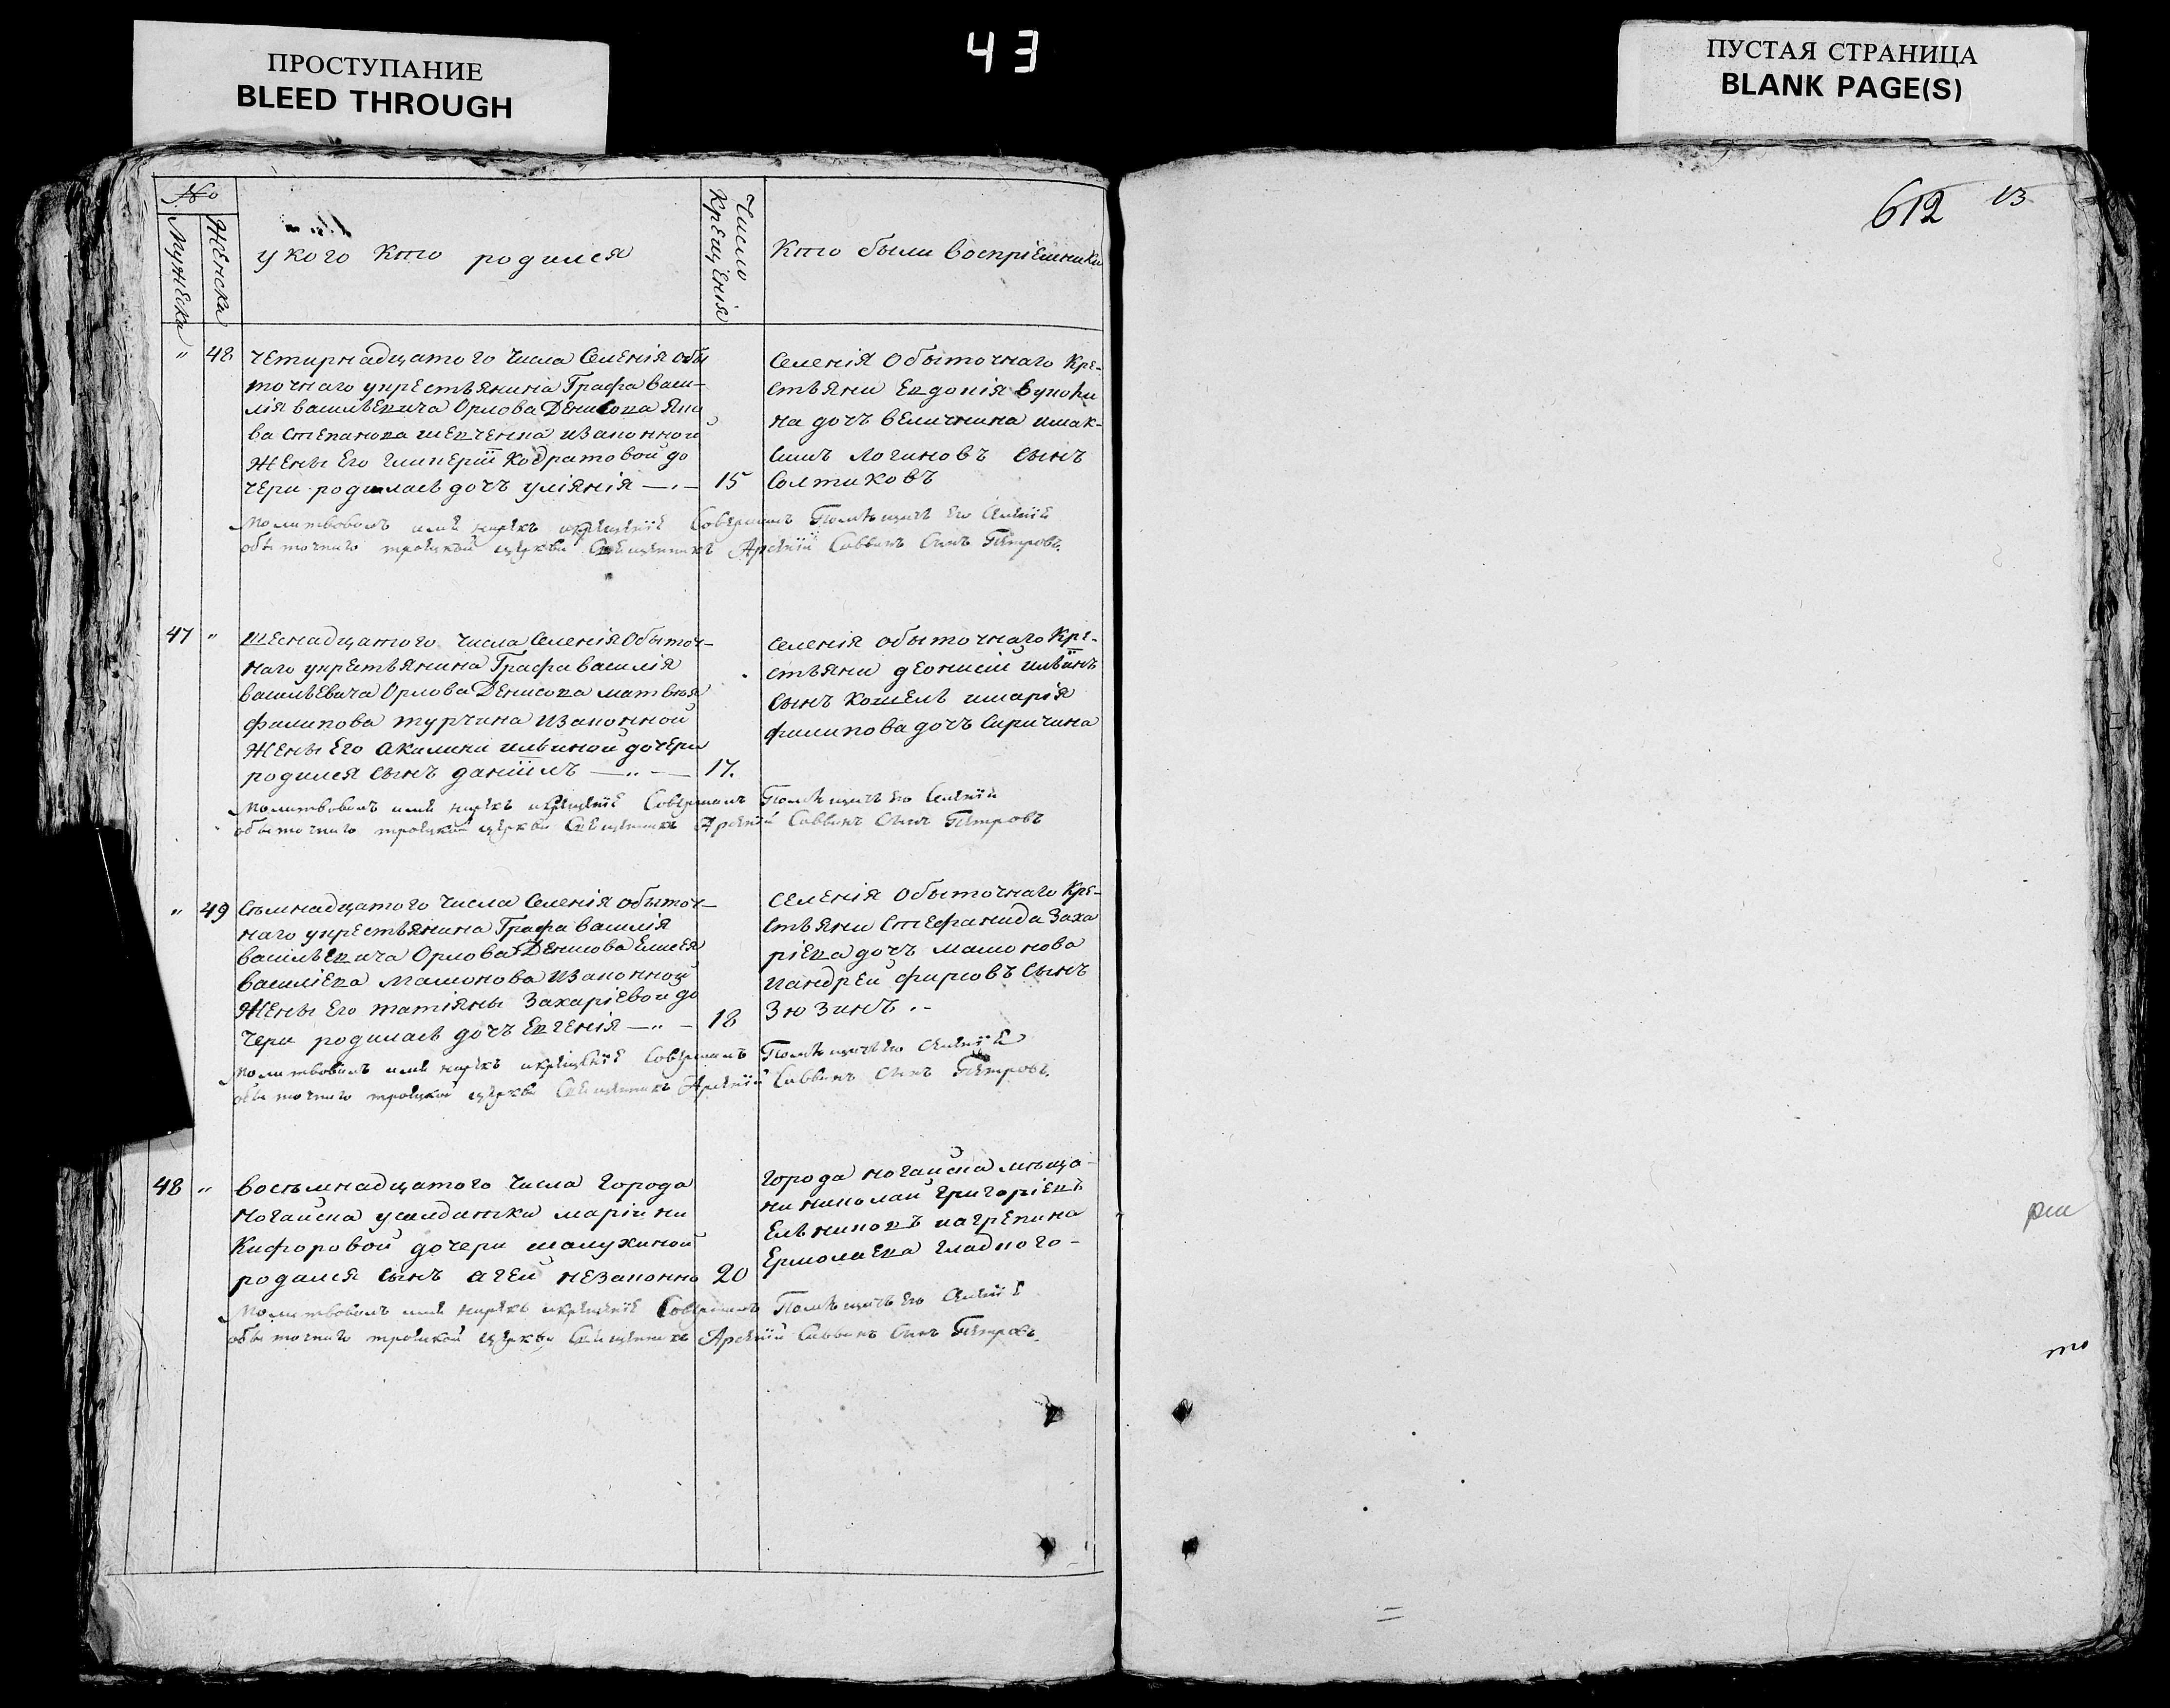 ПРОСТУПАНИЕ
BLEED THROUGH
43
ПУСТАЯ СТРАНИЦА
BLANK PAGE(S)
612
№
Мужеска
Женска
укого кто родился
Число Крещенія
Кто были воспріемники
" 48
четирнадцатого числа Селенія обы
точнаго укрестьянина Графа васи-
лія васильевича Орлова Денисова Яко
ва Степанова шевченка изаконной
жены Его гликеріи Кодратовой до
чери родилась дочъ уліянія — 15
Селенія Обыточнаго Кре-
стьяни Евдокія
на дочъ величкина имак-
симъ Логиновъ сынъ
Солтиковъ
Молитвовалъ имя нарекъ икрещеніе Совершилъ Помѣщичьего Селенія
обыточнаго троицкой церкви Священникъ Арсеній Саввинъ Сынъ Петровъ.
47 "
шеснадцатого числа Селенія Обыточ-
наго укрестьянина Графа василія
васильевича Орлова Денисова матвея
филипова турчина изаконной
жены Его Акилини ильиной дочери
родился сынъ даніилъ — 17.
Селенія обыточнаго Кре-
стьяни деонисій ильинъ
сынъ кошель имарія
филипова дочъ Сиричина
Молитвовалъ имя нарекъ икрещеніе Совершилъ Помѣщичьего Селенія
обыточнаго троицкой церкви Священникъ Арсеній Саввинъ Сынъ Петровъ
" 49
Семнадцатого числа Селенія обыточ-
наго укрестьянина Графа василія
васильевича Орлова Денисова Елисея
василіева мамонова изаконной
жены Его татіяны Захаріевой до
чери родилась дочъ Евгенія — 18
Селенія Обыточнаго Кре-
стьяни Стефанида Заха
ріева дочъ мамонова
иандрей фирсовъ сынъ
Зюзинъ.-
Молитвовалъ имя нарекъ икрещеніе Совершилъ Помѣщичьего Селенія
обыточнаго троицкой церкви Священникъ Арсеній Саввинъ Сынъ Петровъ.
48 "
восемнадцатого числа города
Ногайска усалдатки маріи ни
кифоровой дочери шалухиной
родился сынъ агей незаконно 20
города ногайска мѣща-
ни николай григоріевъ
иагрепина
Ермолаева гладкого-
Молитвовалъ имя нарекъ икрещеніе Совершилъ Помѣщичьего Селенія
обыточнаго троицкой церкви Священникъ Арсеній Саввинъ Сынъ Петровъ.
то